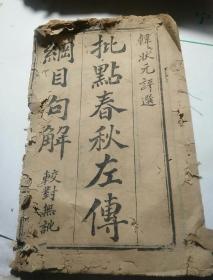 韓狀元評選
批點春秋左傳
綱目句解
較對無訛